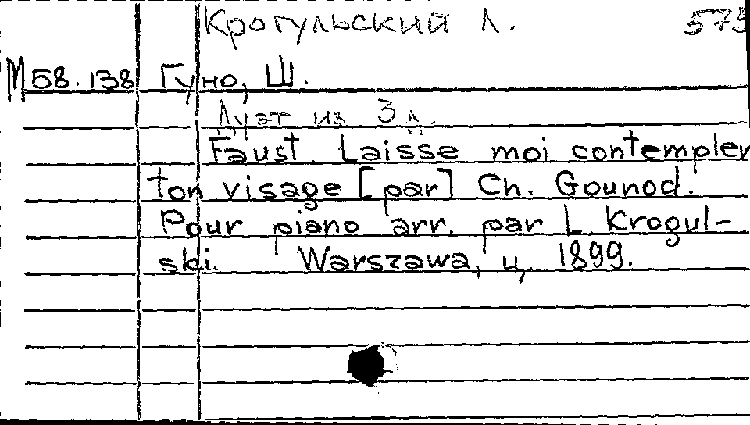 Крогульский Л. 575
М 58.138 Гуно, Ш.
Дуэт из 3 д.
Faust. Laisse moi contempler
ton visage [par] Ch. Gounod.
Pour piano arr. par L. Krogul-
ski. Warszawa, ц. 1899.